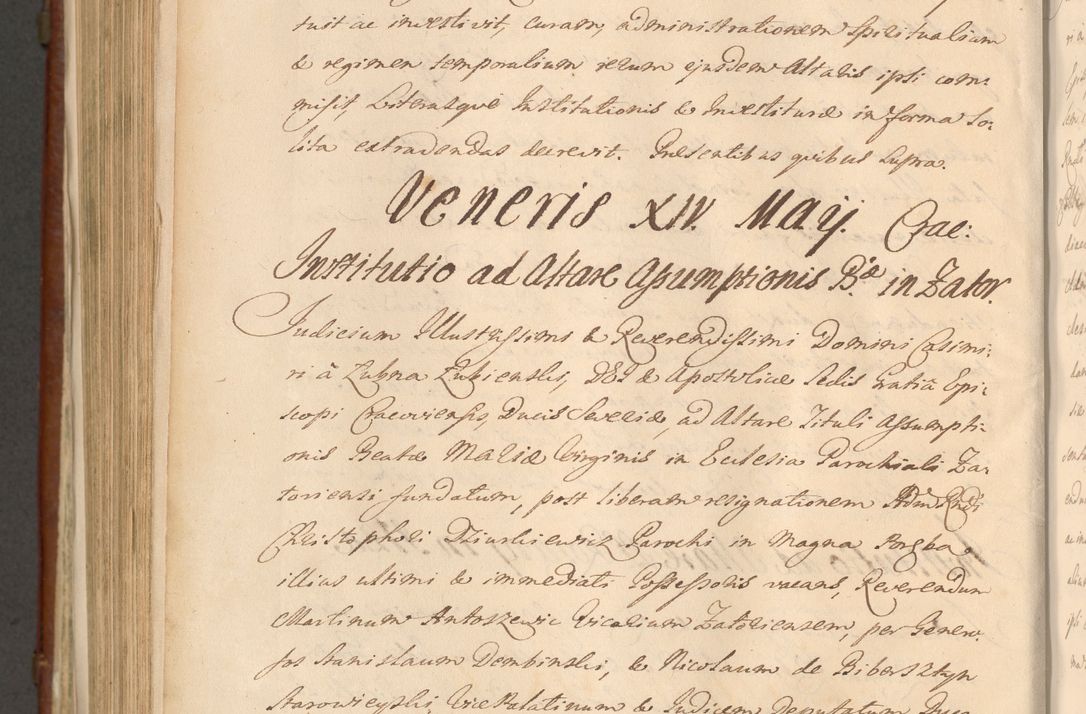 tuit ac investivit, curam, administrationem Spiritualium
& regimen temporalium rerum ejusdem Altaris ipsi com:
misit, Literasque Institutionis & Investituræ in forma so:
lita extradendas decrevit. Præsentibus quibus supra.
Veneris XIV. Maij. Crac:
Institutio ad Altare Assumptionis B.æ in Zator.
Judicium Illustrissimi & Reverendissimi Domini Casimi:
ri â Łubna Łubienski, DEI & Apostolicæ Sedis Gratiâ Epi:
scopi Cracoviensis, Ducis Severiæ, ad Altare Tituli Assumpti:
onis Beatæ MARIÆ Virginis in Ecclesia Parochiali Za:
toriensi fundatum, post liberam resignationem Adm Rndi
Christophori Dziurkiewicz Parochi in Magna Poręba,
illius ultimi & immediati Possessoris vacans, Reverendum
Martinum Antoszewic Vicarium Zatoriensem, per Genero:
sos Stanislaum Dembinski, & Nicolaum de Bibersztyn
Starowieyski, Vice Palatinum & Judicem Deputatum Duca